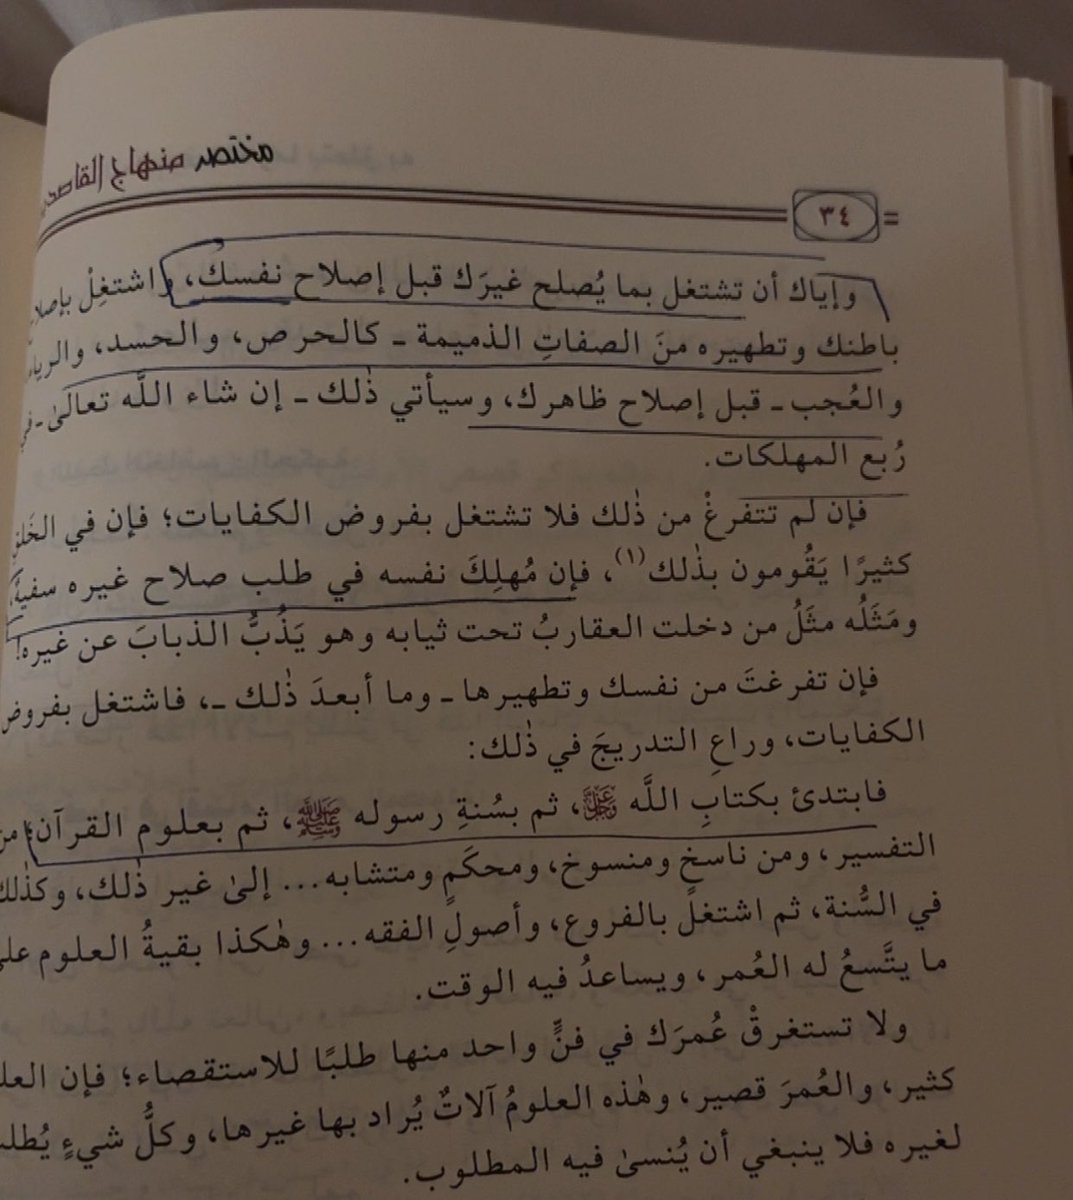 مختصر منهاج القاصد
= ٣٤
وإياك أن تشتغل بما يُصلح غيرَك قبل إصلاح نفسك، واشتغِلْ بإصلا
باطنك وتطهيره منَ الصفاتِ الذميمة ـ كالحرص، والحسد، والرياء
والعُجب ـ قبل إصلاح ظاهرك، وسيأتي ذٰلك ـ إن شاء اللَّه تعالىٰ ـ في
رُبع المهلكات.
فإن لم تتفرغْ من ذٰلك فلا تشتغل بفروض الكفايات؛ فإن في الخَلق
كثيرًا يَقُومون بذٰلك(١)، فإن مُهلِكَ نفسه في طلب صلاح غيره سفيهٌ،
ومَثَلُه مثَلُ من دخلت العقاربُ تحت ثيابه وهو يَذُبُّ الذبابَ عن غيره!
فإن تفرغتَ من نفسك وتطهيرها ـ وما أبعدَ ذٰلك ـ، فاشتغل بفروض
الكفايات، وراعِ التدريجَ في ذٰلك:
فابتدئ بكتابِ اللَّه ﷻ، ثم بسُنةِ رسوله ﷺ، ثم بعلوم القرآن؛ من
التفسير، ومن ناسخٍ ومنسوخ، ومحكَمٍ ومتشابه... إلىٰ غير ذٰلك، وكذٰلك
في السُّنة، ثم اشتغلْ بالفروع، وأصولِ الفقه... وهٰكذا بقيةُ العلوم علىٰ
ما يتَّسعُ له العُمر، ويساعدُ فيه الوقت.
ولا تستغرقْ عُمرَك في فنٍّ واحد منها طلبًا للاستقصاء؛ فإن العل
كثير، والعُمرَ قصير، وهٰذه العلومُ آلاتٌ يُراد بها غيرها، وكلُّ شيءٍ يُطلب
لغيره فلا ينبغي أن يُنسىٰ فيه المطلوب.